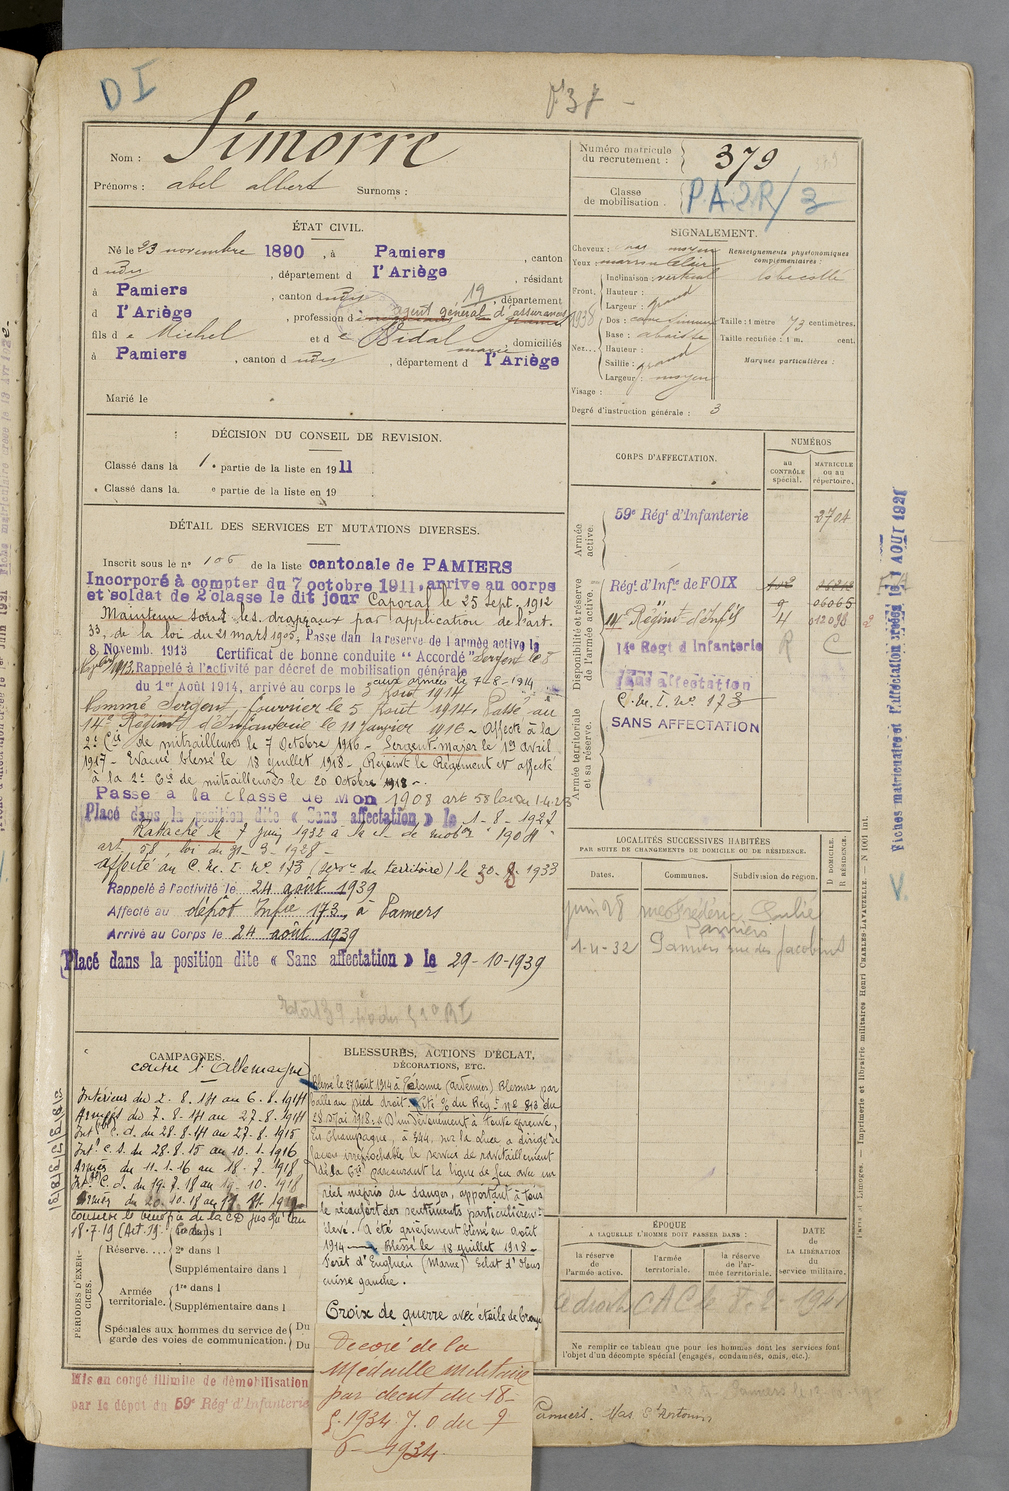 D I
Simorre
Nom :
Prénoms : abel albert Surnoms :
Numéro matricule
du recrutement : 379
Classe
de mobilisation . PA2R/3
ÉTAT CIVIL.
Né le 23 novembre 1890, à Pamiers, canton
d udit, département d l'Ariège, résidant
à Pamiers, canton dudit, département
d l'Ariège, profession d agent général d'assurances
fils d e Michel et d e Vidal, domiciliés
à Pamiers, canton d udit, département d l'Ariège
Marié le
SIGNALEMENT.
Cheveux : moyen
Yeux : marron clair
Renseignements physionomiques
complémentaires :
lobe collé
Front. Inclinaison : vertical
Hauteur :
Largeur : grand
Nez... Dos :
Base : abaissée
Hauteur :
Saillie : grand
Largeur : moyen
Taille : 1 mètre 73 centimètres.
Taille rectifiée : 1 m. cent.
Marques particulières :
Visage :
Degré d'instruction générale : 3
DÉCISION DU CONSEIL DE REVISION.
Classé dans la 1e partie de la liste en 1911
Classé dans la e partie de la liste en 19
CORPS D'AFFECTATION.
NUMÉROS
au
CONTRÔLE
spécial.
MATRICULE
ou au
répertoire.
Armée
active.
59e Régt d'Infanterie 3704
Disponibilité et réserve
de l'armée active.
Régt d'Infie de FOIX
9 06065
14e Régiment d'Infie 4 012098
14e Régt d'Infanterie R C
Sans affectation
C. M. I. No 173
Armée territoriale
et sa réserve.
SANS AFFECTATION
DÉTAIL DES SERVICES ET MUTATIONS DIVERSES.
Inscrit sous le no 106 de la liste cantonale de PAMIERS
Incorporé à compter du 7 octobre 1911, arrive au corps
et soldat de 2 classe le dit jour Caporal le 25 Sept. 1912
Maintenu sous les drapeaux par application de l'art.
33, de la loi du 21 mars 1905. Passé dan la réserve de l'armée active le
8 Novemb. 1913 Certificat de bonne conduite "Accordé" Sergent le 8
1913. Rappelé à l'activité par décret de mobilisation générale
du 1er Août 1914, arrivé au corps le 3 Août 1914 aux armées le 7-8-1914
Nommé Sergent fourrier le 5 Août 1914. Passé au
14e Régiment d'Infanterie le 11 Janvier 1916 - Affecté à la
2e Cie de mitrailleuses le 7 Octobre 1916 - Sergent-major le 19 avril
1917 - Evacué blessé le 18 juillet 1918 - Rejoint le Régiment et affecté
à la 2e Cie de mitrailleuses le 20 Octobre 1918 -
Passé à la classe de Mon 1908 art 58 loi du 1-4-23
Placé dans la position dite « Sans affectation » le 1-8-1927
Rattaché le 7 juin 1932 à la cl. de mobon 1904
art. 58, loi du 31-3-1928 -
affecté au C. M. I. No 173 (serv. du territoire) le 20- 1933
Rappelé à l'activité le 24 août 1939
Affecté au dépôt Infie 173, à Pamiers
Arrivé au Corps le 24 août 1939
Placé dans la position dite « Sans affectation » le 29-10-1939
LOCALITÉS SUCCESSIVES HABITÉES
PAR SUITE DE CHANGEMENTS DE DOMICILE OU DE RÉSIDENCE.
Dates. Communes. Subdivision de région. D DOMICILE. R RÉSIDENCE.
juin 28 rue Frédéric Soulié
Pamiers
1-4-32 Pamiers rue des Jacobins
CAMPAGNES.
contre l'Allemagne
Intérieur du 2-8-14 au 6-8-1914
Armées du 7-8-14 au 27-8-1914
Intr C.d. du 28-8-14 au 27-8-1915
Intr C.s. du 28-8-15 au 10-1-1916
Armées du 11-1-16 au 18-7-1918
Intr C.d. du 19-7-18 au 19-10-1918
Armées du 20-10-18 au
conserve le bénéfice de la CD jusqu'au
18-7-19
PÉRIODES D'EXERCICES.
Réserve....
1re dans l
2e dans l
Supplémentaire dans l
Armée
territoriale.
1re dans l
Supplémentaire dans l
Spéciales aux hommes du service de
garde des voies de communication.
Du
Du
BLESSURES, ACTIONS D'ÉCLAT,
DÉCORATIONS, ETC.
Blessé le 27 août 1914 à (Ardennes) Blessure par
balle au pied droit. Cité O/ du Régt no 813 du
28 Mai 1918. « D'un dévouement à toute épreuve,
En Champagne, à 344, sur la Meuse a dirigé de
façon irréprochable le service de ravitaillement
de la Cie, parcourant la ligne de feu avec un
réel mépris du danger, apportant à tous
le réconfort des sentiments particulièrement
élevé. A été grièvement blessé en août
1914 - Blessé le 18 juillet 1918 -
Forêt d'Enghien (Marne) Eclat d'obus
cuisse gauche.
Croix de guerre avec étoile de bronze
Décoré de la
Médaille militaire
par décret du 18-
5-1934 J.O du 7
6-1934.
ÉPOQUE
A LAQUELLE L'HOMME DOIT PASSER DANS :
la réserve
de
l'armée active.
l'armée
territoriale.
la réserve
de l'armée territoriale.
DATE
de
LA LIBÉRATION
du
service militaire.
Ne remplir ce tableau que pour les hommes dont les services font
l'objet d'un décompte spécial (engagés, condamnés, omis, etc.).
Mis en congé illimité de démobilisation
par le dépôt du 59e Régt d'Infanterie
Paris et Limoges. — Imprimerie et librairie militaires Henri CHARLES-LAVAUZELLE. — N 1001 int.